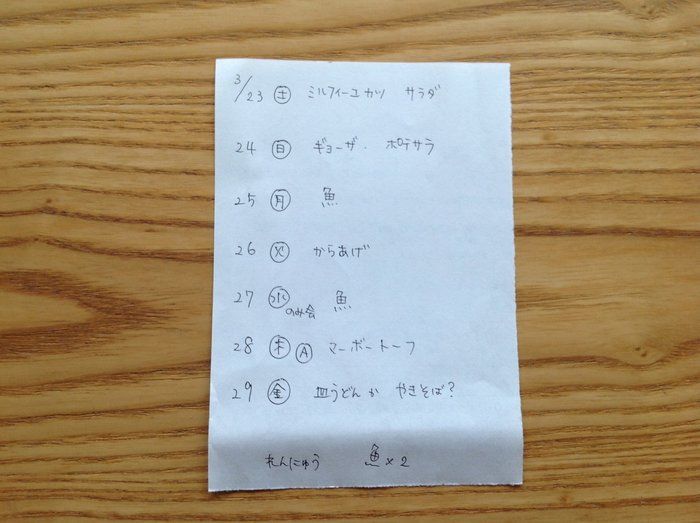 3/23 ㊏ ミルフィーユカツ サラダ
24 ㊐ ギョーザ・ ポテサラ
25 ㊊ 魚
26 ㊋ からあげ
27 ㊌ のみ会 魚
28 ㊍ Ⓐ マーボートーフ
29 ㊎ 皿うどんか やきそば?
れんにゅう 魚×2